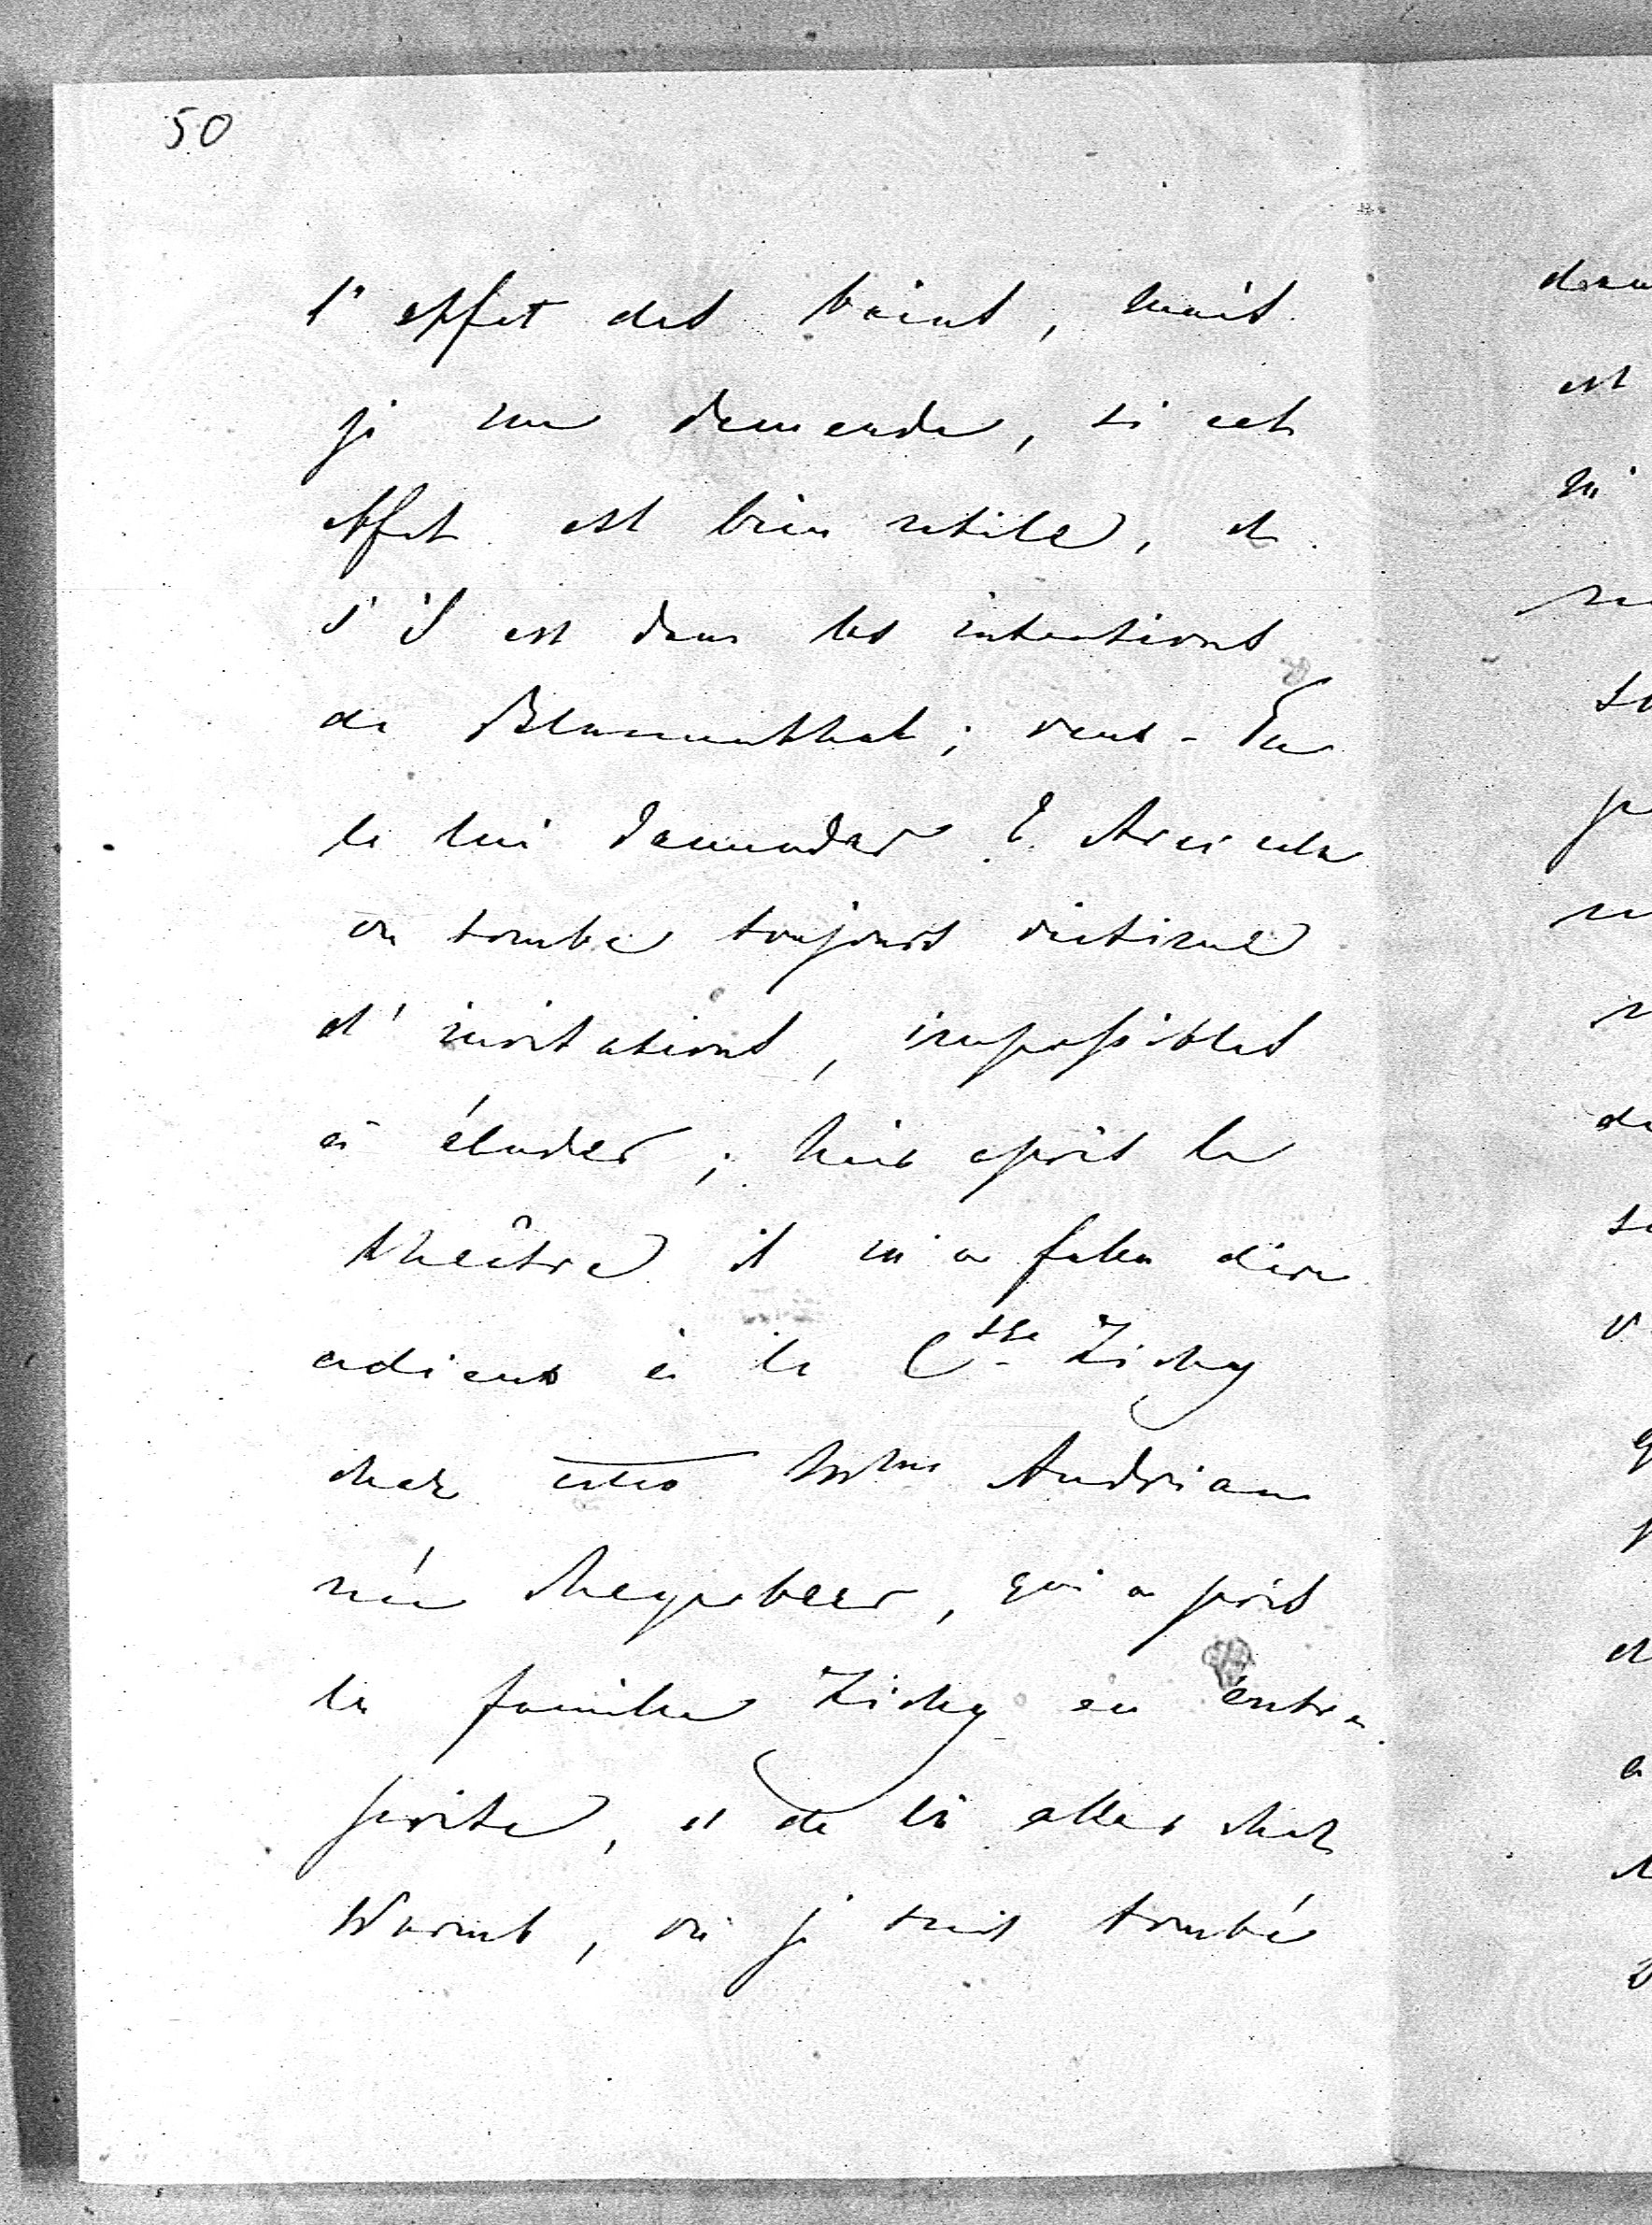 50
l'effet des bains, mais
je me demande, si cet
effet est bien utile, et
s'il est dans les intentions
de Blumenthal; veux-Tu
le lui demander? Avec cela
on tombe toujours victime
d'invitations, impossibles
à éluder; hier après le
théâtre il m'a fallu dire
adieux à la Csse Zichy
chez Mme Andrian
née Meyerbeer, qui a pris
la famille Zichy en entre
prise, et de là aller chez
Worms, où je suis tombé
est